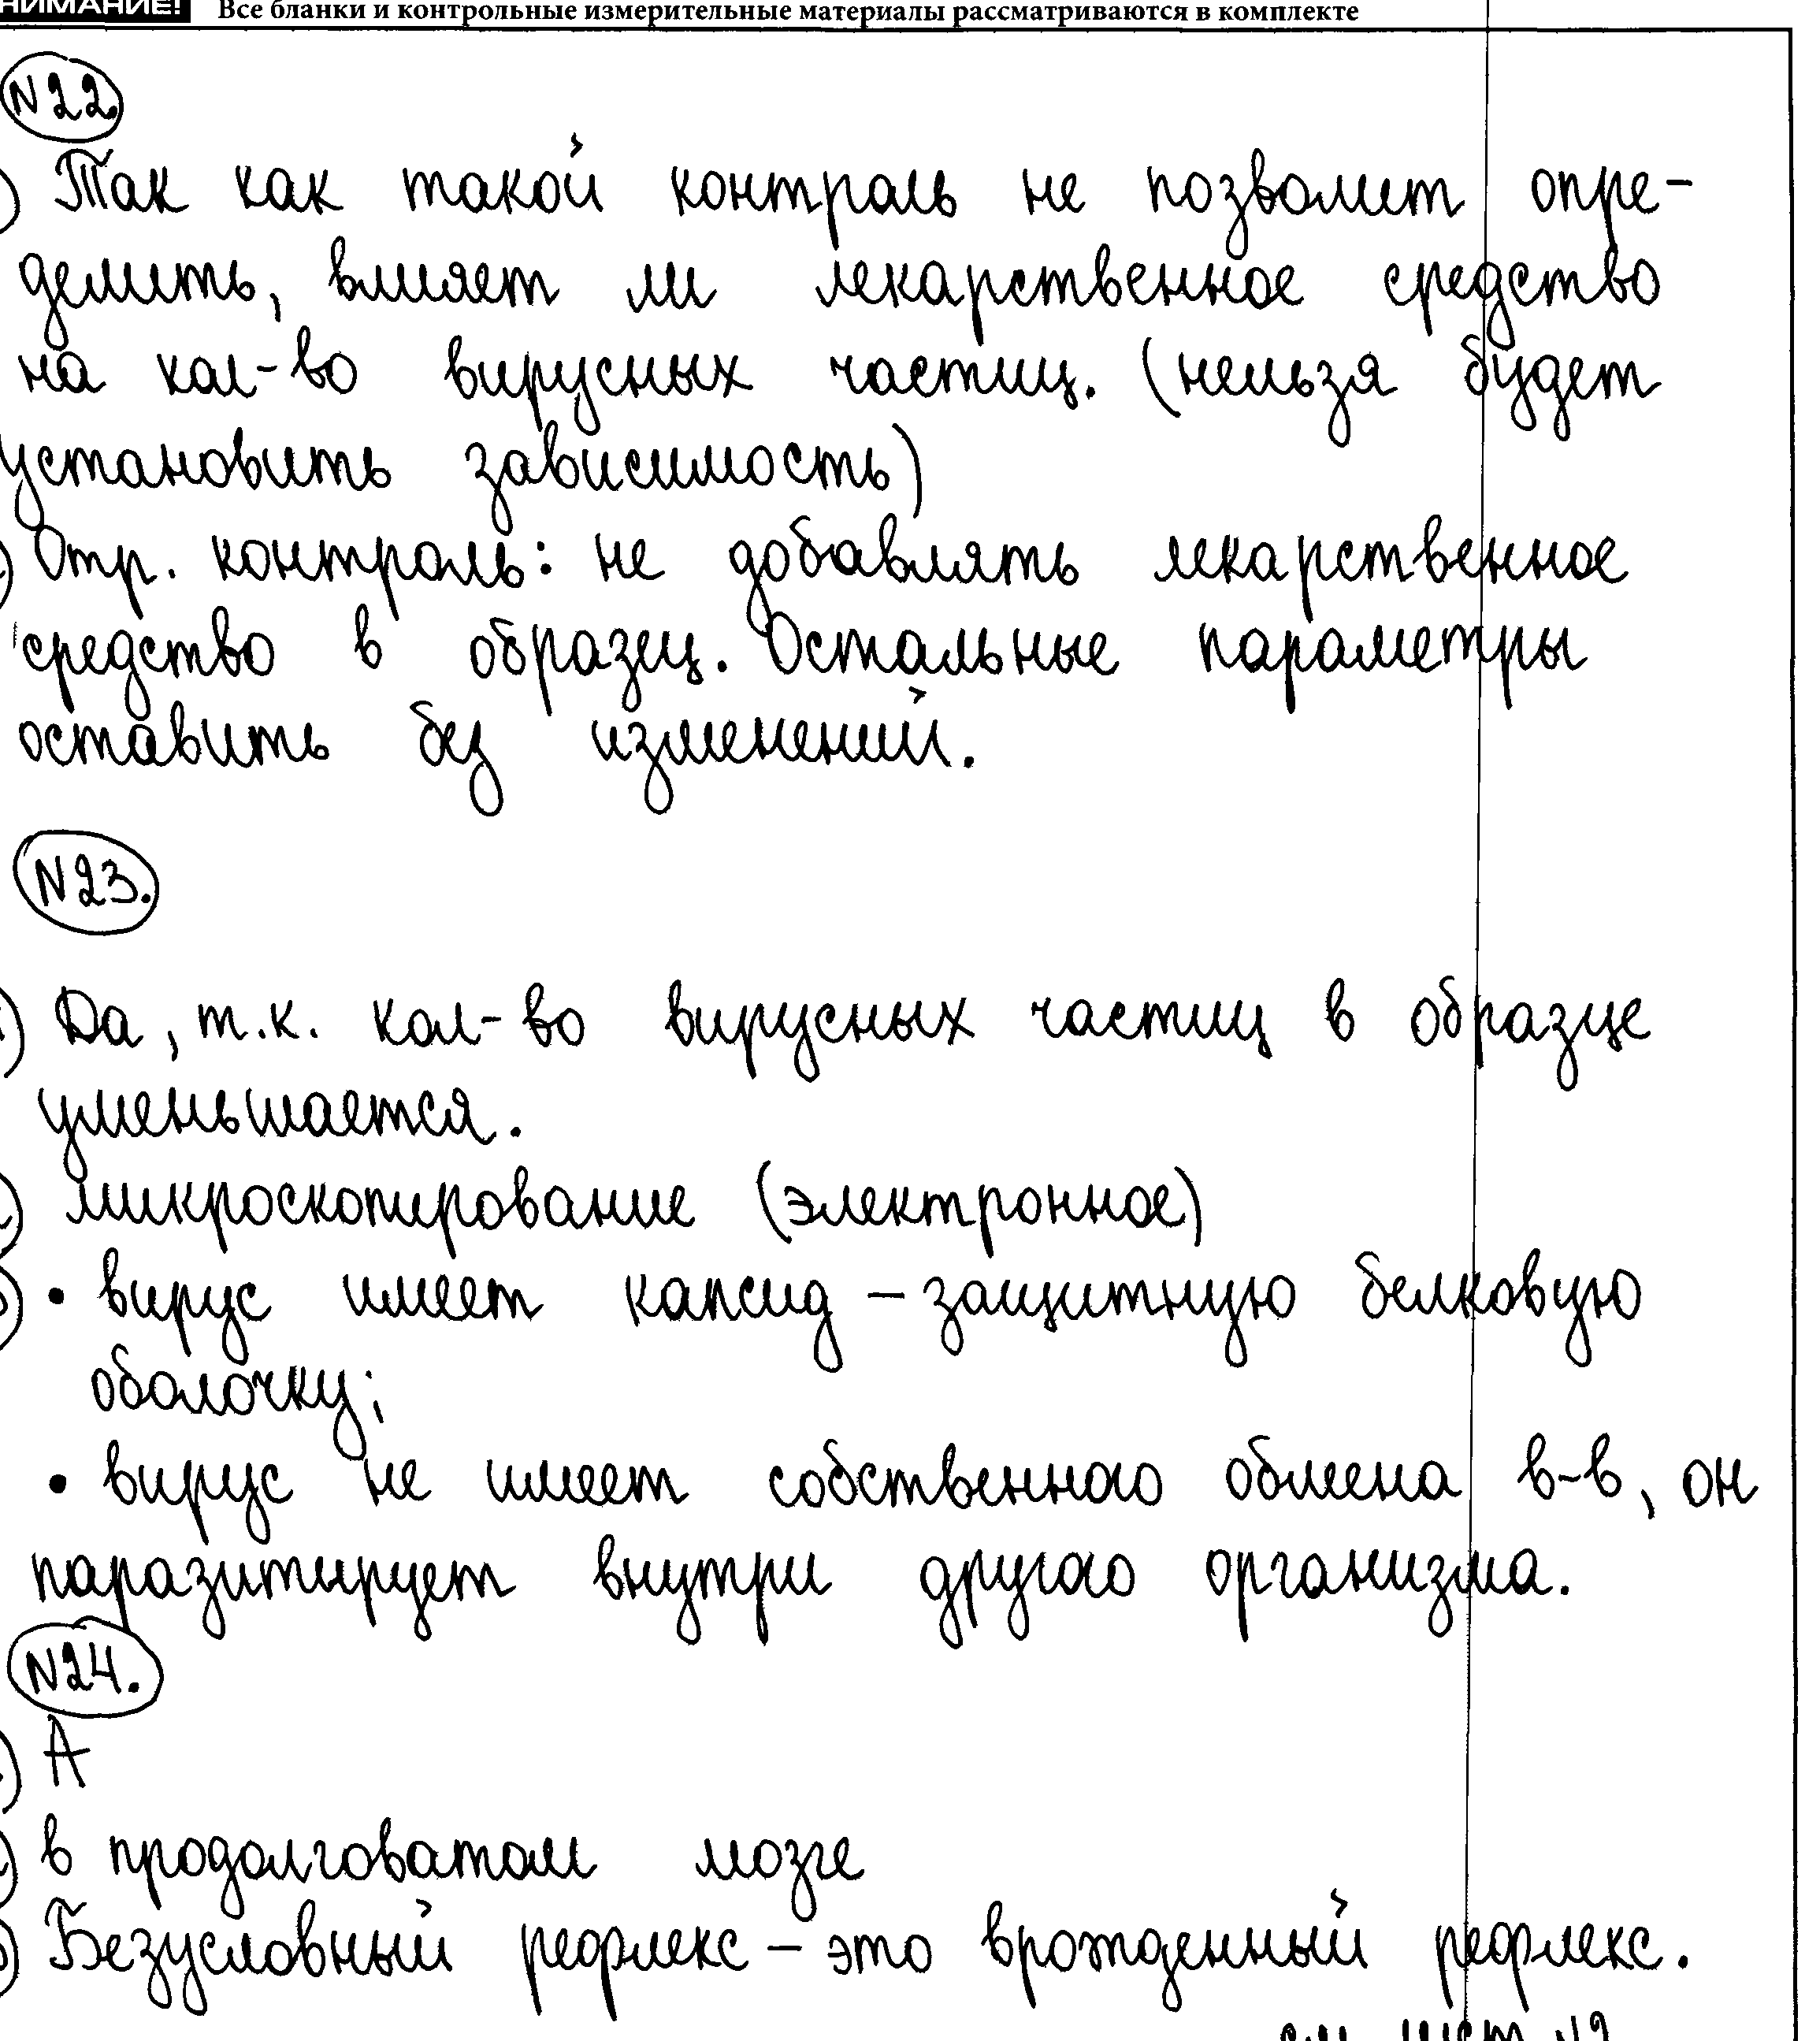 НИМАНИЕ! Все бланки и контрольные измерительные материалы рассматриваются в комплекте
N22.
) Так как такой контроль не позволит опре-
делить, влияет ли лекарственное средство
на кол-во вирусных частиц. (нельзя будет
установить зависимость)
) Отр. контроль: не добавлять лекарственное
средство в образец. Остальные параметры
оставить без изменений.
N23.
) Да, т.к. кол-во вирусных частиц в образце
уменьшается.
) микроскопирование (электронное)
) • вирус имеет капсид – защитную белковую
оболочку;
• вирус не имеет собственного обмена в-в, он
паразитирует внутри другого организма.
N24.
) А
) в продолговатом мозге
) Безусловный рефлекс – это врожденный рефлекс.
см. лист N2